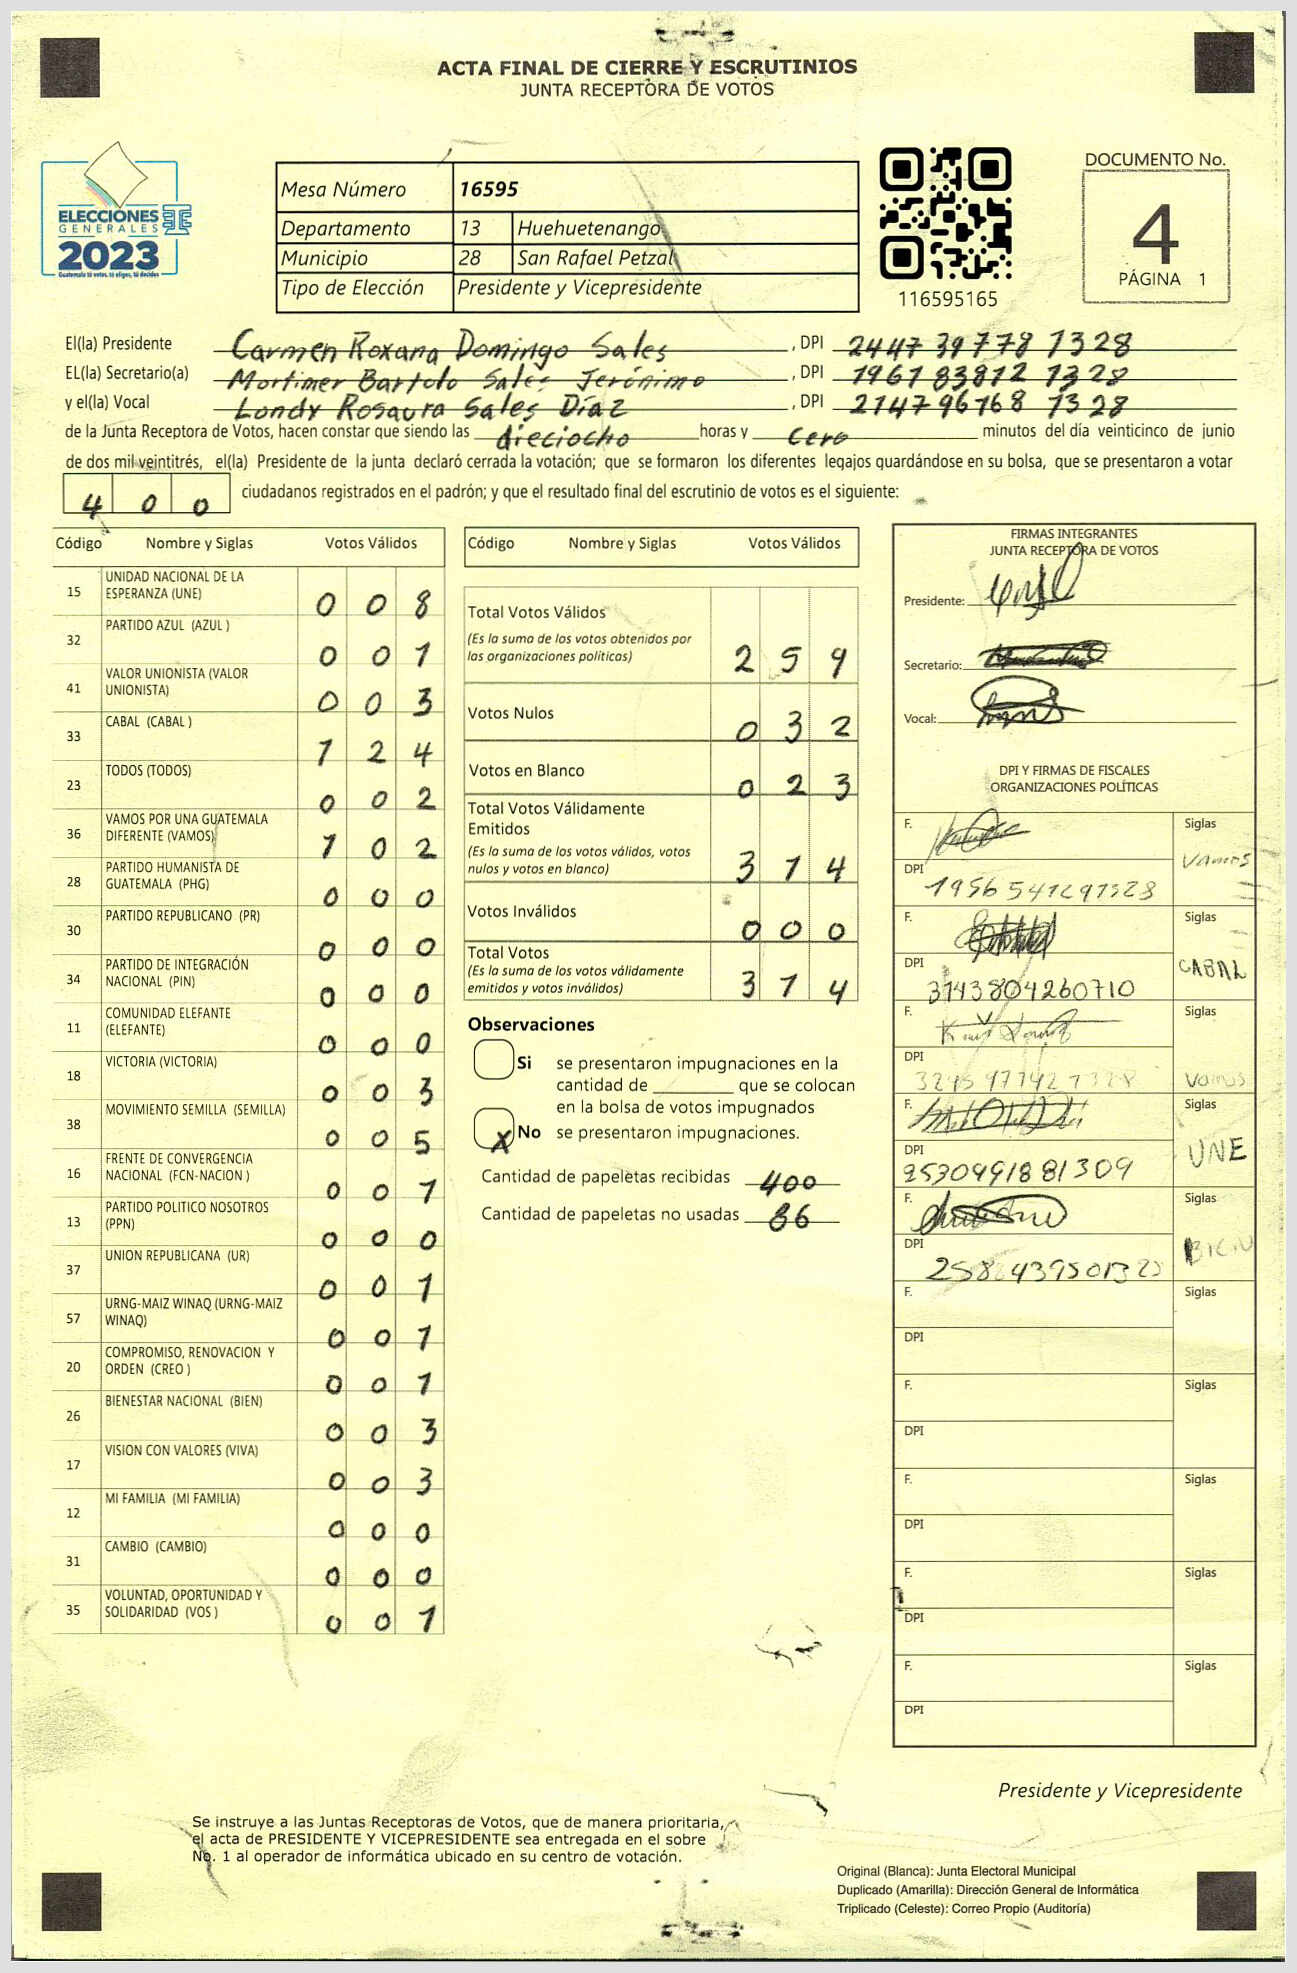 ACTA FINAL DE CIERRE Y ESCRUTINIOS
JUNTA RECEPTORA DE VOTOS
ELECCIONES
GENERALES
2023
Guatemala tú votas, tú eliges, tú decides
Mesa Número 16595
Departamento 13 Huehuetenango
Municipio 28 San Rafael Petzal
Tipo de Elección Presidente y Vicepresidente
116595165
DOCUMENTO No.
4
PÁGINA 1
El(la) Presidente Carmen Roxana Domingo Sales , DPI 2447 39778 1328
EL(la) Secretario(a) Mortimer Bartolo Sales Jerónimo , DPI 1961 83812 1328
y el(la) Vocal Londy Rosaura Sales Díaz , DPI 2147 96768 1328
de la Junta Receptora de Votos, hacen constar que siendo las dieciocho horas y cero minutos del día veinticinco de junio
de dos mil veintitrés, el(la) Presidente de la junta declaró cerrada la votación; que se formaron los diferentes legajos guardándose en su bolsa, que se presentaron a votar
4 0 0 ciudadanos registrados en el padrón; y que el resultado final del escrutinio de votos es el siguiente:
Código Nombre y Siglas Votos Válidos
15 UNIDAD NACIONAL DE LA ESPERANZA (UNE) 0 0 8
32 PARTIDO AZUL (AZUL ) 0 0 1
41 VALOR UNIONISTA (VALOR UNIONISTA) 0 0 3
33 CABAL (CABAL ) 1 2 4
23 TODOS (TODOS) 0 0 2
36 VAMOS POR UNA GUATEMALA DIFERENTE (VAMOS) 1 0 2
28 PARTIDO HUMANISTA DE GUATEMALA (PHG) 0 0 0
30 PARTIDO REPUBLICANO (PR) 0 0 0
34 PARTIDO DE INTEGRACIÓN NACIONAL (PIN) 0 0 0
11 COMUNIDAD ELEFANTE (ELEFANTE) 0 0 0
18 VICTORIA (VICTORIA) 0 0 3
38 MOVIMIENTO SEMILLA (SEMILLA) 0 0 5
16 FRENTE DE CONVERGENCIA NACIONAL (FCN-NACION ) 0 0 1
13 PARTIDO POLITICO NOSOTROS (PPN) 0 0 0
37 UNION REPUBLICANA (UR) 0 0 1
57 URNG-MAIZ WINAQ (URNG-MAIZ WINAQ) 0 0 1
20 COMPROMISO, RENOVACION Y ORDEN (CREO ) 0 0 1
26 BIENESTAR NACIONAL (BIEN) 0 0 3
17 VISION CON VALORES (VIVA) 0 0 3
12 MI FAMILIA (MI FAMILIA) 0 0 0
31 CAMBIO (CAMBIO) 0 0 0
35 VOLUNTAD, OPORTUNIDAD Y SOLIDARIDAD (VOS ) 0 0 1
Código Nombre y Siglas Votos Válidos
Total Votos Válidos 2 5 9
(Es la suma de los votos obtenidos por
las organizaciones políticas)
Votos Nulos 0 3 2
Votos en Blanco 0 2 3
Total Votos Válidamente
Emitidos 3 1 4
(Es la suma de los votos válidos, votos
nulos y votos en blanco)
Votos Inválidos 0 0 0
Total Votos 3 1 4
(Es la suma de los votos válidamente
emitidos y votos inválidos)
Observaciones
Si se presentaron impugnaciones en la
cantidad de ________ que se colocan
en la bolsa de votos impugnados
X No se presentaron impugnaciones.
Cantidad de papeletas recibidas 400
Cantidad de papeletas no usadas 86
FIRMAS INTEGRANTES
JUNTA RECEPTORA DE VOTOS
Presidente:
Secretario:
Vocal:
DPI Y FIRMAS DE FISCALES
ORGANIZACIONES POLÍTICAS
F. Siglas
Vamos
DPI
F. Siglas
CABAL
DPI 3143804260710
F. Siglas
DPI
Vamos
F. Siglas
UNE
DPI 2530991881309
F. Siglas
DPI
F. Siglas
DPI
F. Siglas
DPI
F. Siglas
DPI
F. Siglas
DPI
F. Siglas
DPI
Presidente y Vicepresidente
Se instruye a las Juntas Receptoras de Votos, que de manera prioritaria,
el acta de PRESIDENTE Y VICEPRESIDENTE sea entregada en el sobre
No. 1 al operador de informática ubicado en su centro de votación.
Original (Blanca): Junta Electoral Municipal
Duplicado (Amarilla): Dirección General de Informática
Triplicado (Celeste): Correo Propio (Auditoría)